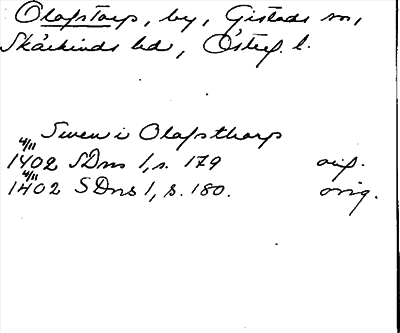 Olofstorp, by, Gistads sn,
Skärkinds hd, Östergl. l.
Swen i Olafsthorp
4/11
1402 SDns 1, s. 179 orig.
4/11
1402 SDns 1, s. 180. orig.